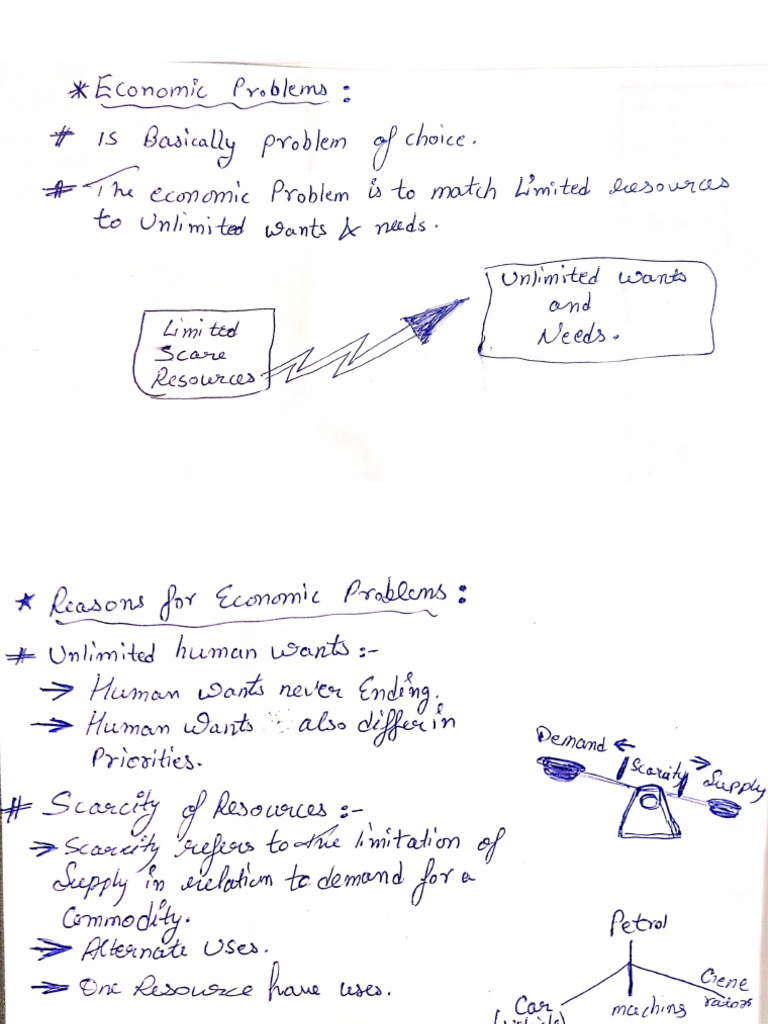 * Economic Problems :
# is Basically problem of choice.
# The economic Problem is to match Limited resources
to Unlimited wants & needs.
Unlimited wants
and
Needs.
Limited
Scare
Resources
* Reasons for Economic Problems :
# Unlimited human wants :-
→ Human wants never Ending.
→ Human wants also differ in
Priorities.
Demand ←
Scarcity → Supply
# Scarcity of Resources :-
→ Scarcity refers to the limitation of
Supply in relation to demand for a
Commodity.
→ Alternate Uses.
→ One Resource have uses.
Petrol
Car
machins
Gene
rators